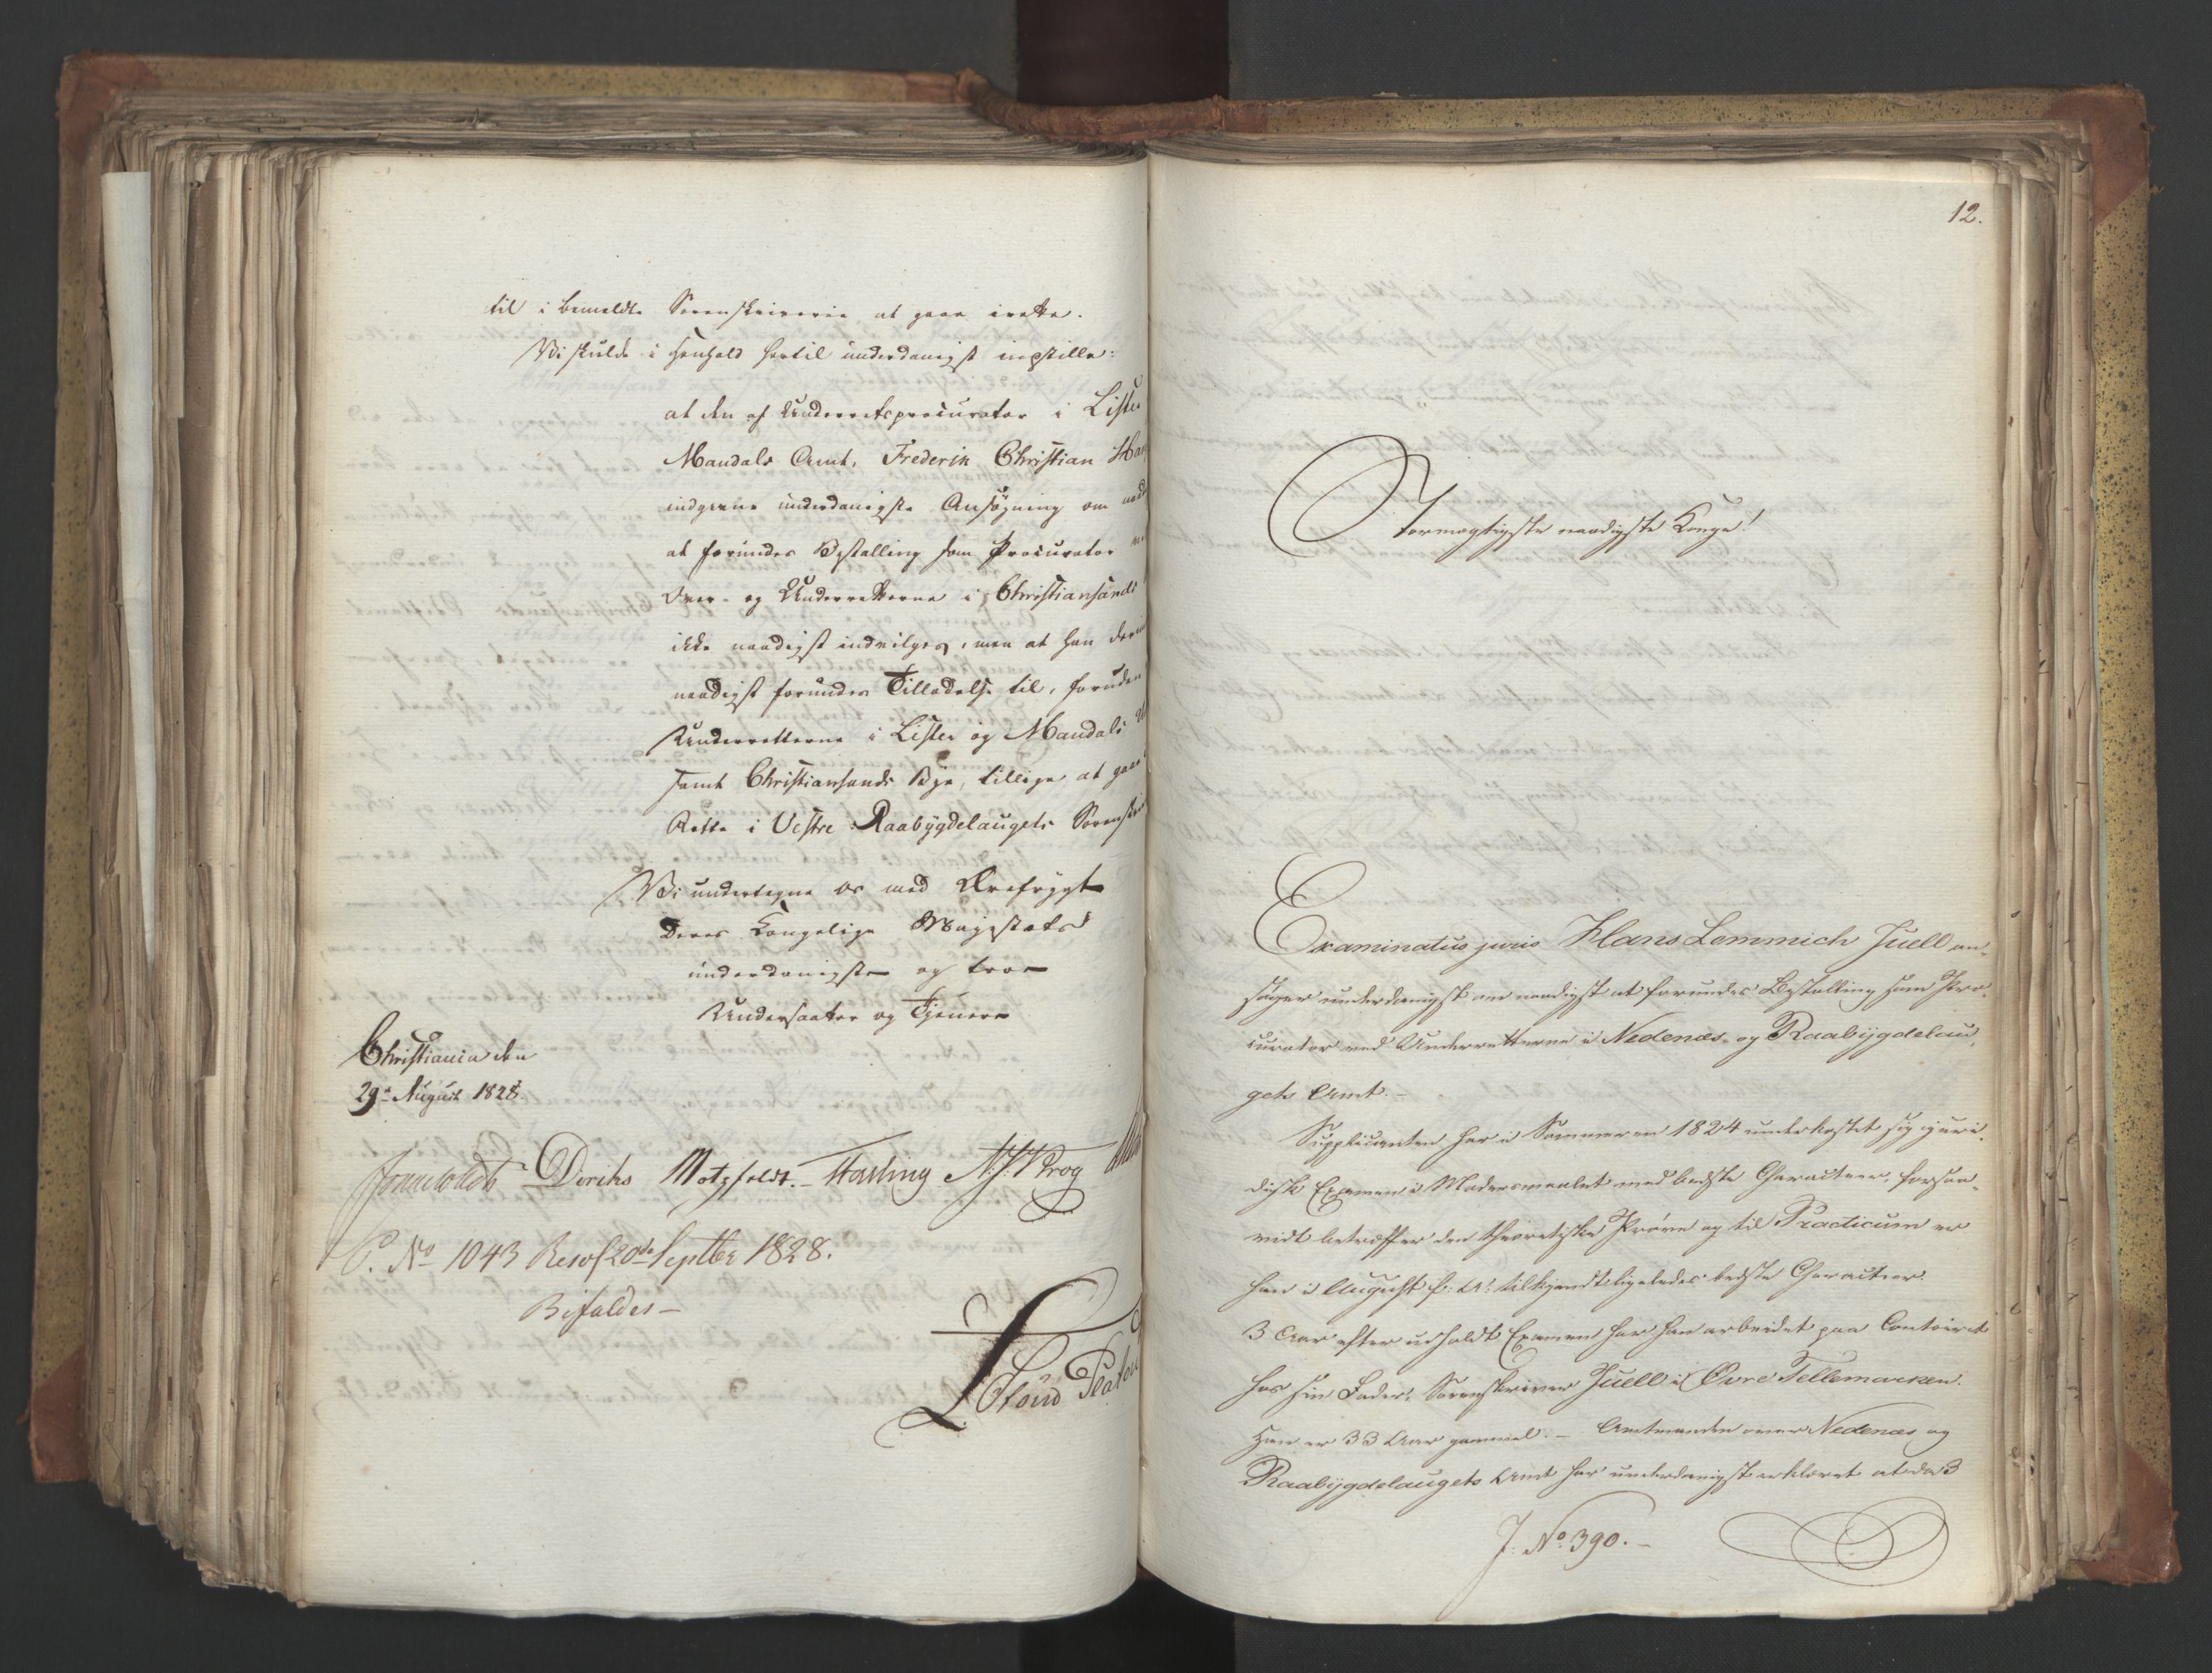 til i bemeldte Sorenskriverie at gaae irette.
Vi skulde i Henhold hertil underdanigst indstille:
at den af Underretsprocurator i Lister
Mandals Amt, Frederik Christian
indgivne underdanigste Ansøgning om
at forundes Bestalling som Procurator
Over- og Underretterne i Christiansands
ikke naadigst indvilges, men at han
naadigst forundes Tilladelse til, foruden
Underretterne i Lister og Mandals
samt Christiansands Bye, tillige at gaae
Rette i Vestre Raabygdelaugets
Vi undertegne os med Ærefrygt
Deres Kongelige Majestæts
underdanigste og troe
Undersaatter og Tjenere
Christiania den
29de August 1828.
Diriks Motzfeldt. N. J. Vrog
P. No 1043 Resol. 20de Septbr 1828.
Bifaldes
12.
Stormægtigste naadigste Konge!
Examinatus juris Hans Lemmich Juell an-
søger underdanigst om naadigst at forundes Bestalling som Pro-
curator ved Underretterne i Nedenæs- og Raabygdelau-
gets Amt.-
Supplicanten har i Sommeren 1824 underkastet sig juri-
disk Examen i Modersmaalet med bedste Characteer, forsaa-
vidt betræffer den theoretiske Prøve og til Practicum er
han i August s: A: tilkjendt ligeledes bedste Characteer.
3 Aar efter udholdt Examen har han arbeidet paa Contoiret
hos sin Fader, Sorenskriver Juell i Øvre Tellemarken.
Han er 33 Aar gammel. - Amtmanden over Nedenæs og
Raabygdelaugets Amt har underdanigst erklæret at da 3
J. No. 390.-